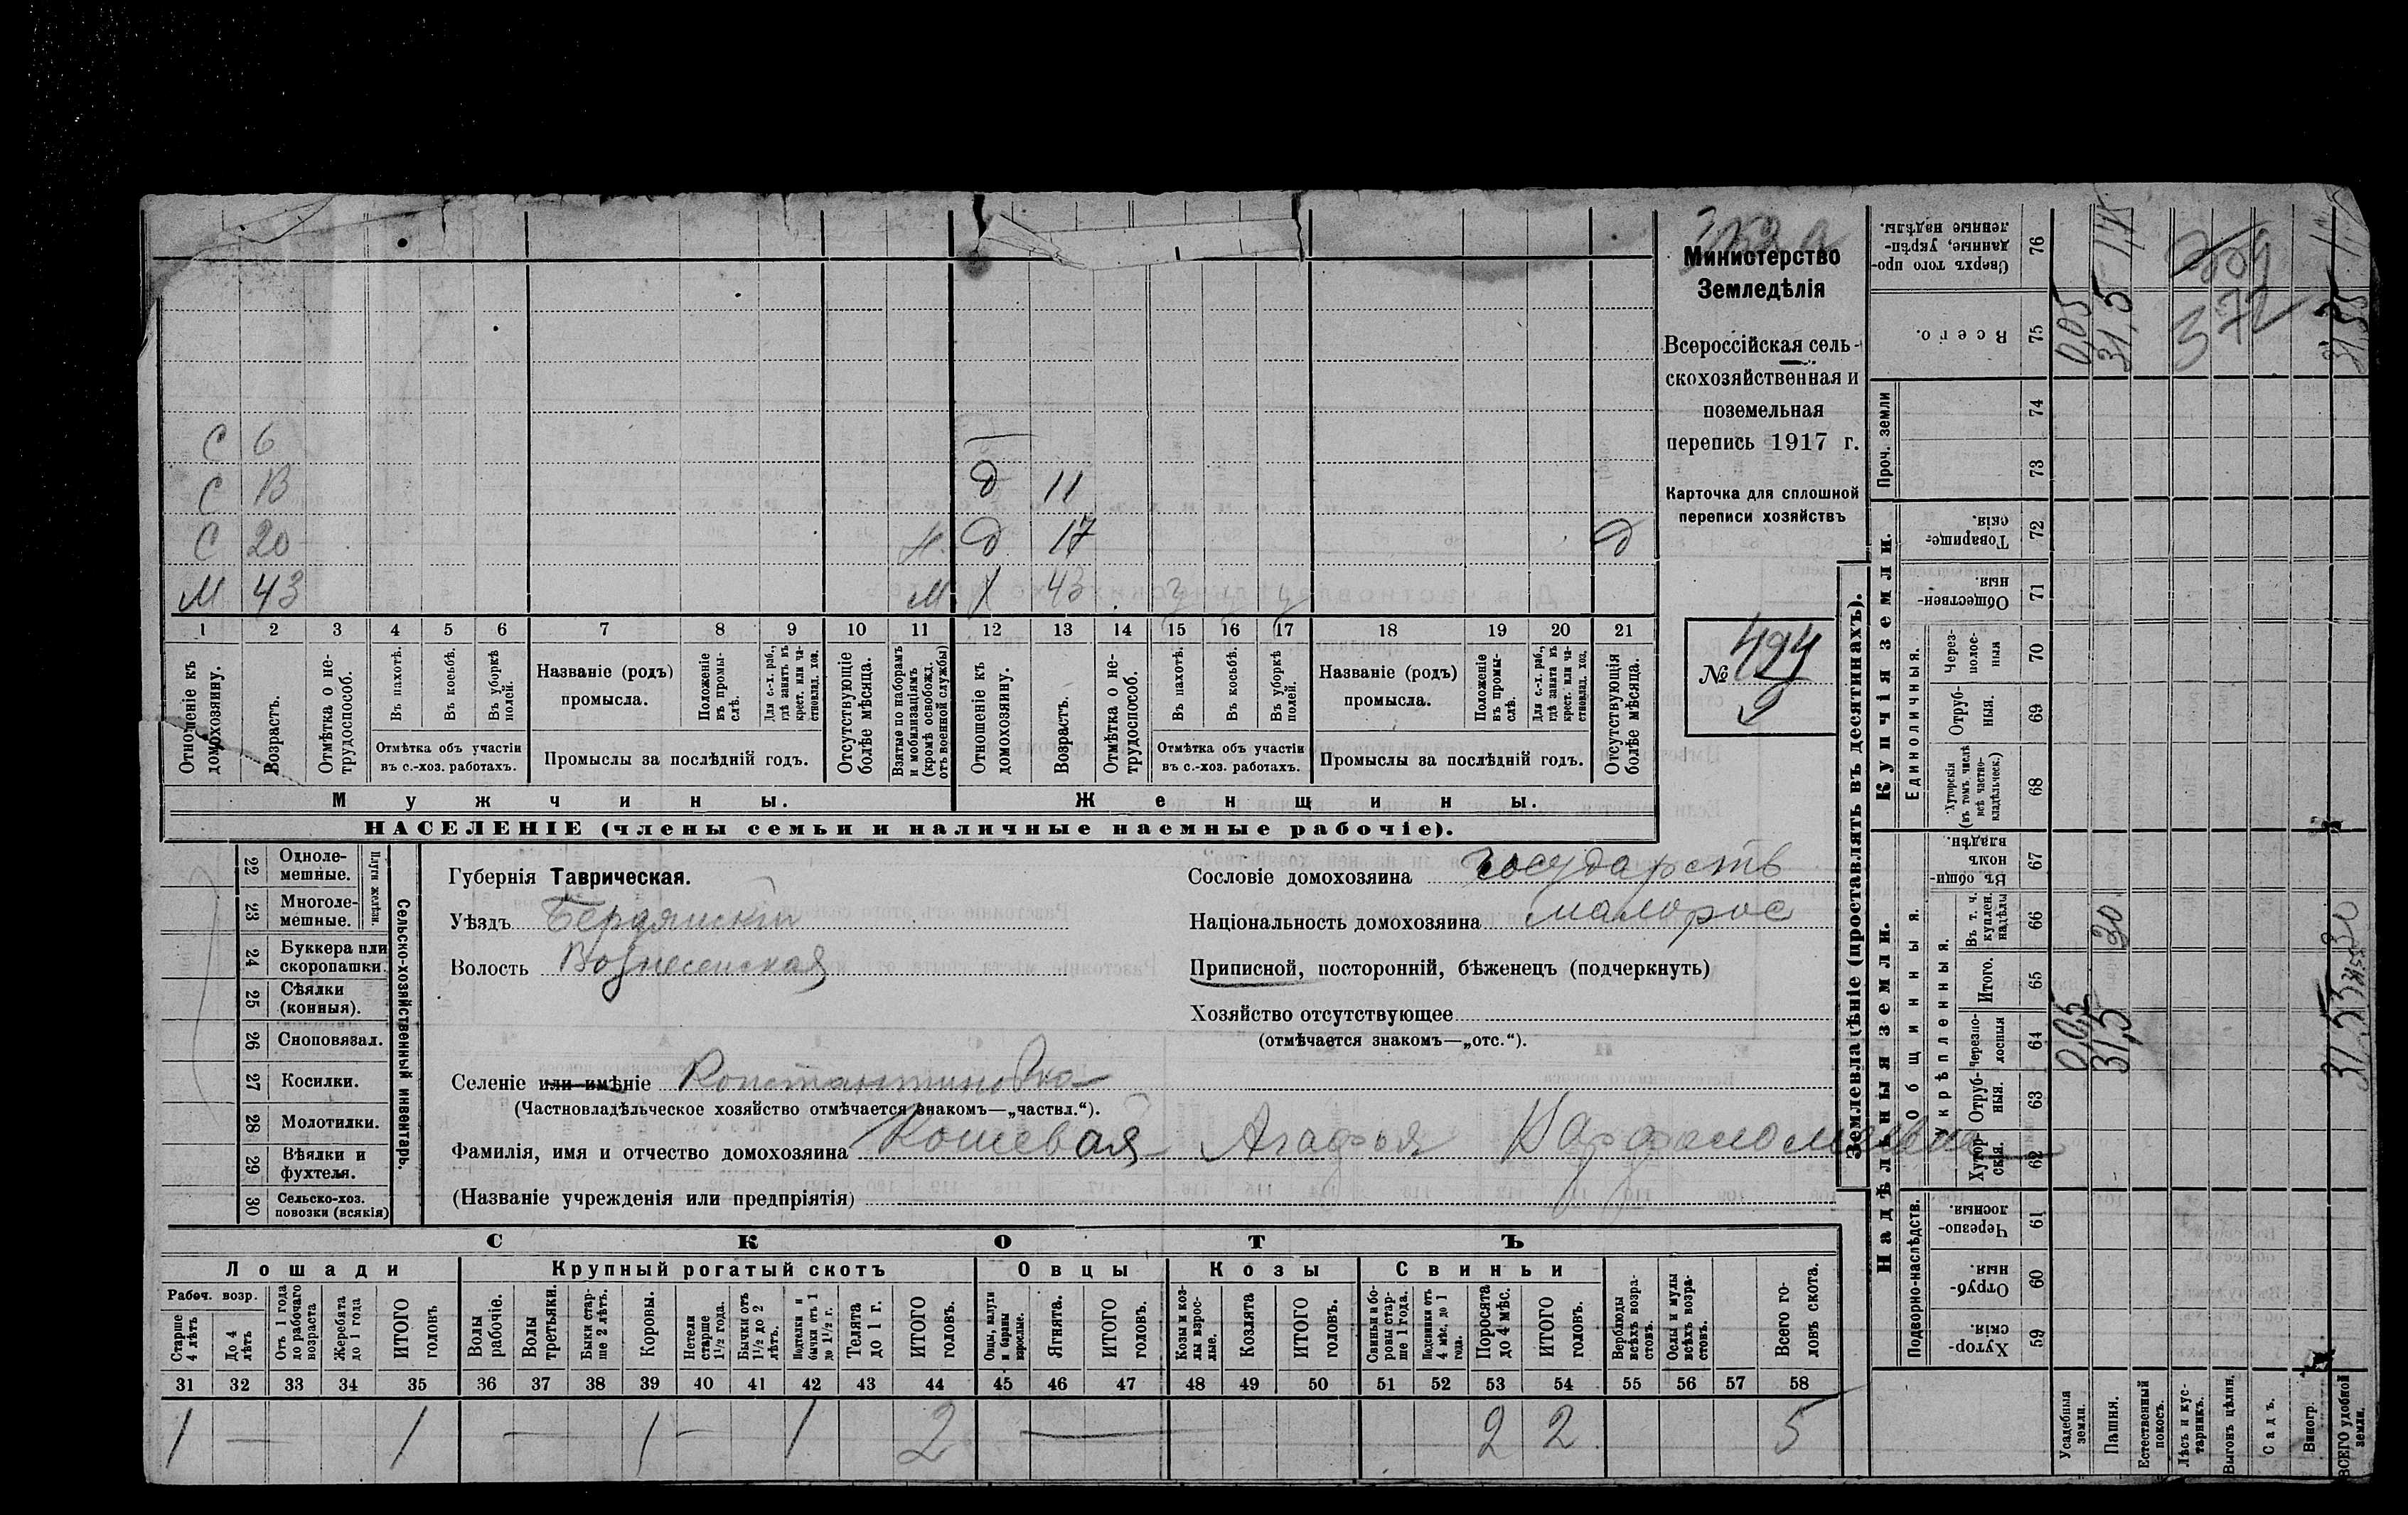 Министерство
Земледѣлія
Всероссійская сель-
скохозяйственная и
поземельная
перепись 1917 г.
Карточка для сплошной
переписи хозяйствъ
№ 494
С 6
С 13 д 11
С 20 д 17 д
М 43 м х 43 ч ч ч
1 2 3 4 5 6 7 8 9 10 11 12 13 14 15 16 17 18 19 20 21
Отношеніе къ домохозяину.
Возрастъ.
Отмѣтка о не-трудоспособ.
Въ пахотѣ.
Въ косьбѣ.
Въ уборкѣ полей.
Отмѣтка объ участіи
въ с.-хоз. работахъ.
Названіе (родъ)
промысла.
Положеніе въ промы-слѣ.
Для с.-х. раб., гдѣ занятъ въ крест. или ча-стновлад. хоз.
Промыслы за послѣдній годъ.
Отсутствующіе болѣе мѣсяца.
Взятые по наборамъ и мобилизаціямъ (кромѣ освобожд. отъ военной службы)
Отношеніе къ домохозяину.
Возрастъ.
Отмѣтка о не-трудоспособ.
Въ пахотѣ.
Въ косьбѣ.
Въ уборкѣ полей.
Отмѣтка объ участіи
въ с.-хоз. работахъ.
Названіе (родъ)
промысла.
Положеніе въ промы-слѣ.
Для с.-х. раб., гдѣ занята въ крест. или ча-стновлад. хоз.
Промыслы за послѣдній годъ.
Отсутствующія болѣе мѣсяца.
Мужчины. Женщины.
НАСЕЛЕНІЕ (члены семьи и наличные наемные рабочіе).
22 Одноле-мешные.
23 Многоле-мешные.
Плуги желѣзн.
24 Буккера или скоропашки.
25 Сѣялки (конныя).
26 Сноповязал.
27 Косилки.
28 Молотилки.
29 Вѣялки и фухтеля.
30 Сельско-хоз. повозки (всякія)
Сельско-хозяйственный инвентарь.
Губернія Таврическая.
Уѣздъ Бердянскій
Волость Вознесенская
Сословіе домохозяина государств
Національность домохозяина малорос
Приписной, посторонній, бѣженецъ (подчеркнуть)
Хозяйство отсутствующее
(отмѣчается знакомъ—„отс.“).
Селеніе или имѣніе Константиновка
(Частновладѣльческое хозяйство отмѣчается знакомъ—„частвл.“).
Фамилія, имя и отчество домохозяина Кошевая Агафья Варфоломеевна
(Названіе учрежденія или предпріятія)
СКОТЪ
Лошади Крупный рогатый скотъ Овцы Козы Свиньи
Рабоч. возр.
Старше 4 лѣтъ
До 4 лѣтъ
Отъ 1 года до рабочаго возраста
Жеребята до 1 года
ИТОГО головъ
Волы рабочіе.
Волы третьяки.
Быки стар-ше 2 лѣтъ.
Коровы.
Нетели старше 1½ года.
Бычки отъ 1½ до 2 лѣтъ.
Подтелки и бычки отъ 1 до 1½ г.
Телята до 1 г.
ИТОГО головъ.
Овцы, валухи и бараны взрослые.
Ягнята.
ИТОГО головъ.
Козы и коз-лы взрос-лые.
Козлята
ИТОГО головъ.
Свиньи и бо-ровы стар-ше 1 года.
Подсвинки отъ 4 мѣс. до 1 года.
Поросята до 4 мѣс.
ИТОГО головъ.
Верблюды всѣхъ возра-стовъ.
Ослы и мулы всѣхъ возра-стовъ.
Всего го-ловъ скота.
31 32 33 34 35 36 37 38 39 40 41 42 43 44 45 46 47 48 49 50 51 52 53 54 55 56 57 58
1 — 1 — 1 — 1 2 — 2 2 5
Землевладѣніе (проставлять въ десятинахъ).
Надѣльныя земли.
Купчія земли.
Проч. земли
Подворно-наслѣдств.
Общинныя.
Укрѣпленныя.
Единоличныя.
Хутор-скія. 59
Отруб-ныя. 60
Черезпо-лосныя. 61
Хутор-скія. 62
Отруб-ныя. 63
Черезпо-лосныя 64
Итого. 65
Въ т. ч. куплен. надѣлы 66
Въ общин-номъ владѣн. 67
Хуторскія (въ томъ числѣ всѣ частно-владѣльческ.) 68
Отруб-ныя. 69
Через-полос-ныя 70
Обществен-ныя. 71
Товарище-скія. 72
73
74
Всего. 75
Сверхъ того про-данные, укрѣп-ленные надѣлы. 76
Усадебныя земли. 0,05 0,05
Пашня. 31,5 30 31,5
Естественный покосъ.
Лѣсъ и кус-тарникъ.
Выгонъ цѣлин.
Садъ.
Виногр.
ВСЕГО удобной земли. 31,55 31,55
372